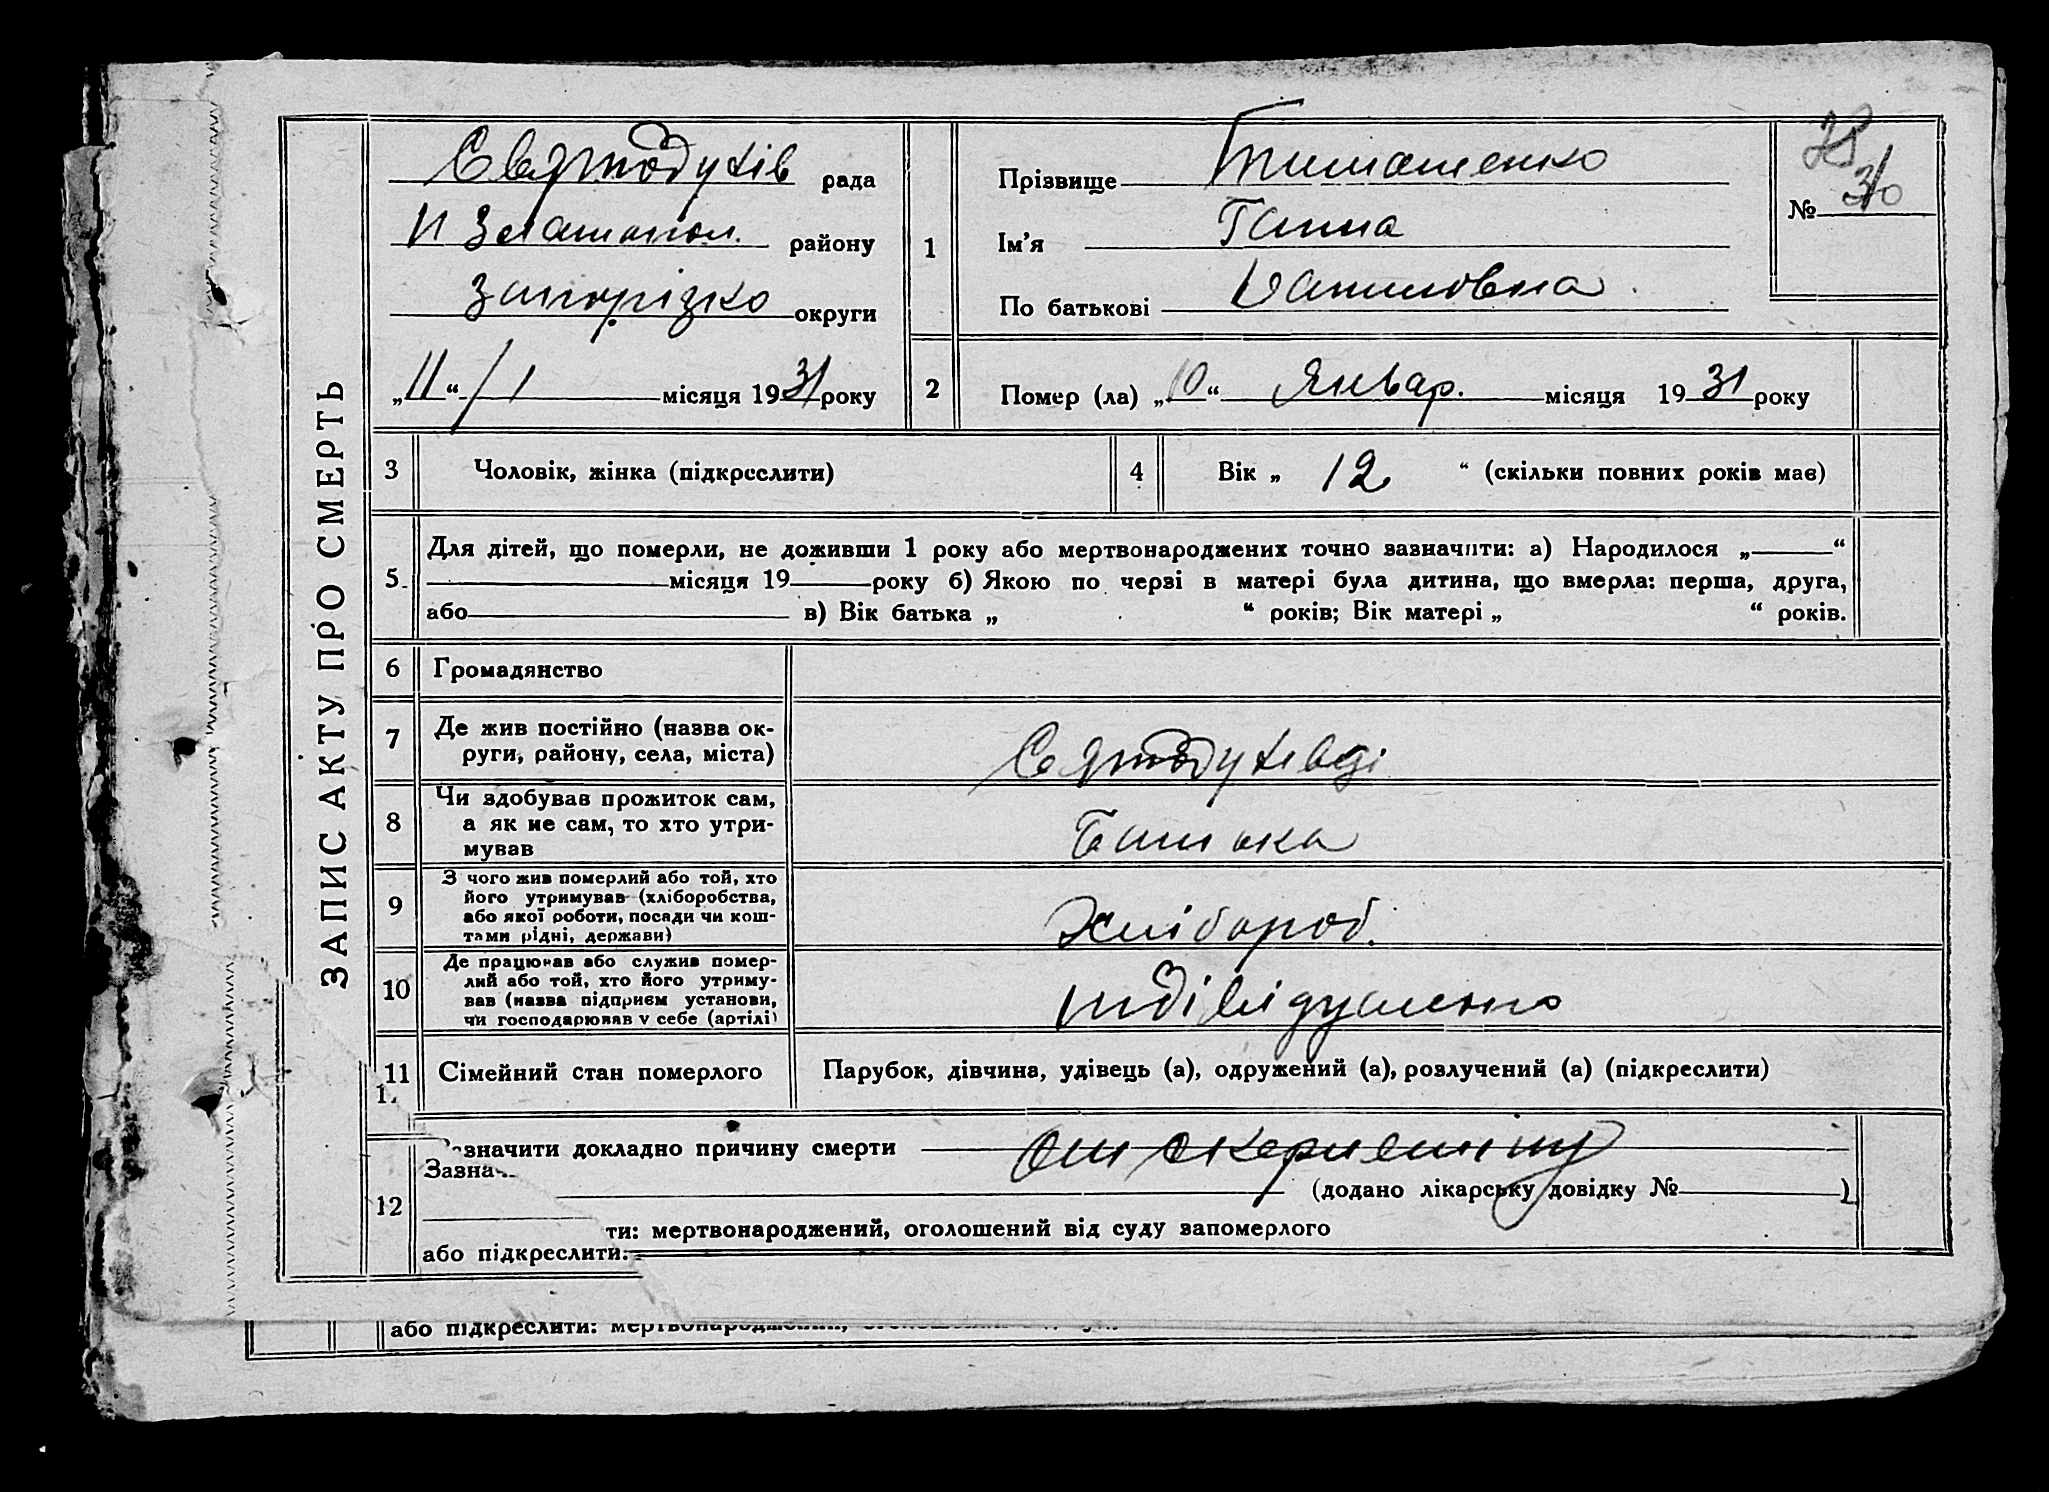 ЗАПИС АКТУ ПРО СМЕРТЬ
Святодухів рада
Н Златопол. району
Запорізко округи
„11“ / 1 місяця 1931 року
1
Прізвище Тимошенко
Ім'я Ганна
По батькові Даниловна
№ 30
2
Помер (ла) „10“ Январ. місяця 1931 року
3 Чоловік, жінка (підкреслити)
4 Вік „ 12 “ (скільки повних років має)
5. Для дітей, що померли, не доживши 1 року або мертвонароджених точно зазначити: а) Народилося „ “
місяця 19 року б) Якою по черзі в матері була дитина, що вмерла: перша, друга,
або в) Вік батька „ “ років; Вік матері „ “ років.
6 Громадянство
7 Де жив постійно (назва ок-
руги, району, села, міста)
Святодухівці
8 Чи здобував прожиток сам,
а як не сам, то хто утри-
мував
Батька
9 З чого жив померлий або той, хто
його утримував (хліборобства,
або якої роботи, посади чи кош-
тами рідні, держави)
Хлібороб.
10 Де працював або служив помер-
лий або той, хто його утриму-
вав (назва підприєм установи,
чи господарював у себе (артілі)
Індівідуально
11 Сімейний стан померлого
Парубок, дівчина, удівець (а), одружений (а), розлучений (а) (підкреслити)
12 значити докладно причину смерти От скерлетіну
Зазна
(додано лікарську довідку № )
ти: мертвонароджений, оголошений від суду запомерлого
або підкреслити:
або підкреслити: мертвонароджений,